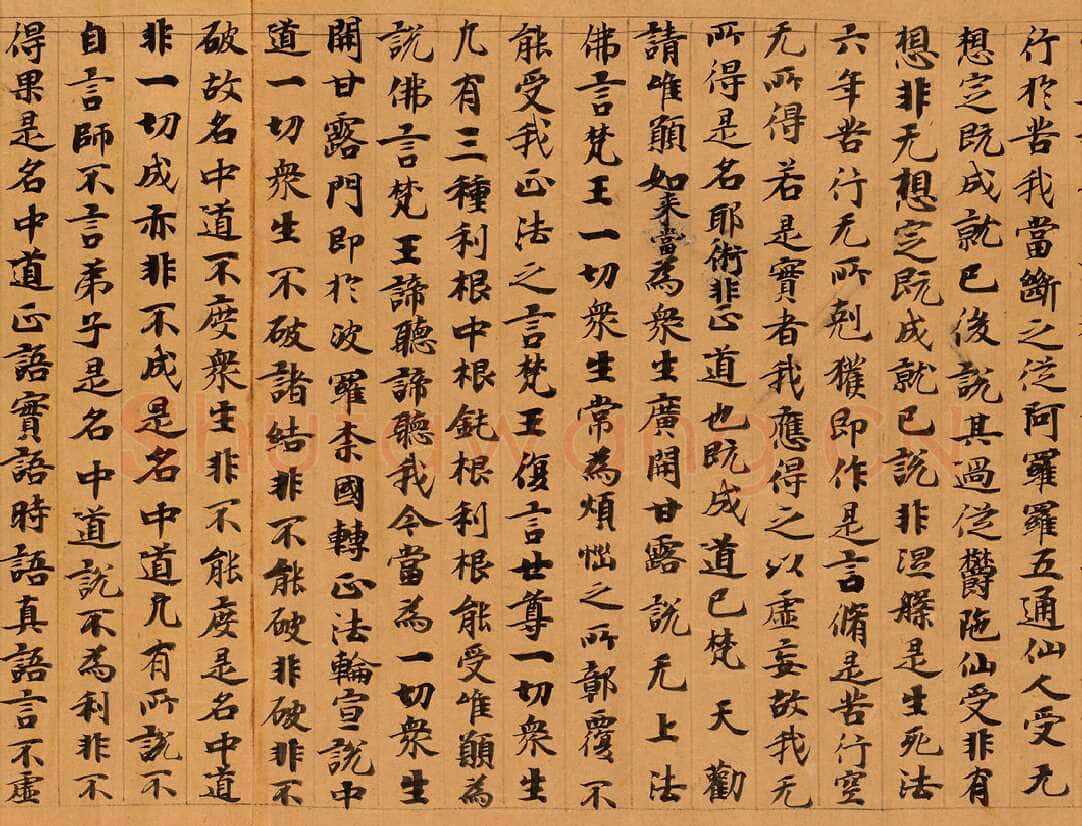 行於苦我當斷之從阿羅羅五通仙人受无
想㝎既成就已後說其過從欝陁仙受非有
想非无想㝎既成就已說非涅槃是生死法
六年苦行无所剋獲即作是言脩是苦行空
无所得若是實者我應得之以虛妄故我无
所得是名耶術非正道也既成道已梵天勸
請唯願如來當為衆生廣開甘露說无上法
佛言梵王一切衆生常為煩惱之所鄣覆不
能受我正法之言梵王復言世尊一切衆生
凡有三種利根中根鈍根利根能受唯願為
說佛言梵王諦聽諦聽我今當為一切衆生
開甘露門即於波羅柰國轉正法輪宣說中
道一切衆生不破諸結非不能破非破非不
破故名中道不度衆生非不能度是名中道
非一切成亦非不成是名中道凡有所說不
自言師不言弟子是名中道說不為利非不
得果是名中道正語實語時語真語言不虛
shufawang.cn